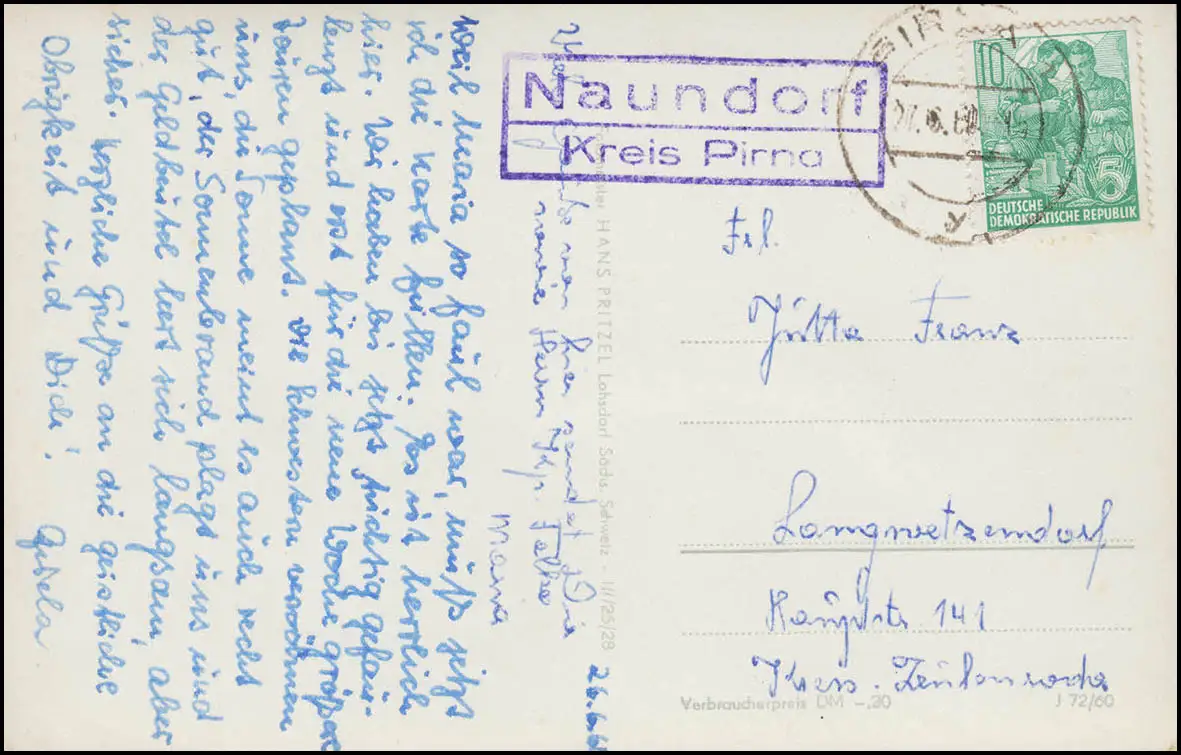 Naundorf
Kreis Pirna
PIRNA
27. 6. 60
10
5
DEUTSCHE
DEMOKRATISCHE REPUBLIK
Frl.
Jutta Franz
Langwetzendorf
Hauptstr 141
Kreis. Zeulenroda
Verbraucherpreis DM -,30
J 72/60
HANS PRITZEL Lohsdorf Sächs. Schweiz - III/25/28
26.6.6
Viele Grüße von hier sendet Dir
Maria
Weil Maria so faul war, muß jetzt
ich die Karte füllen. Es ist herrlich
hier. Wir haben bis jetzt tüchtig gefau-
lenzt und erst für die neue Woche größere
Touren geplant. Die Schwestern verwöhnen
uns, die Sonne meint es auch recht
gut, der Sonnenbrand plagt uns und
der Geldbeutel leert sich langsam, aber
sicher. Herzliche Grüße an die geistliche
Obrigkeit und Dich!
Gisela.